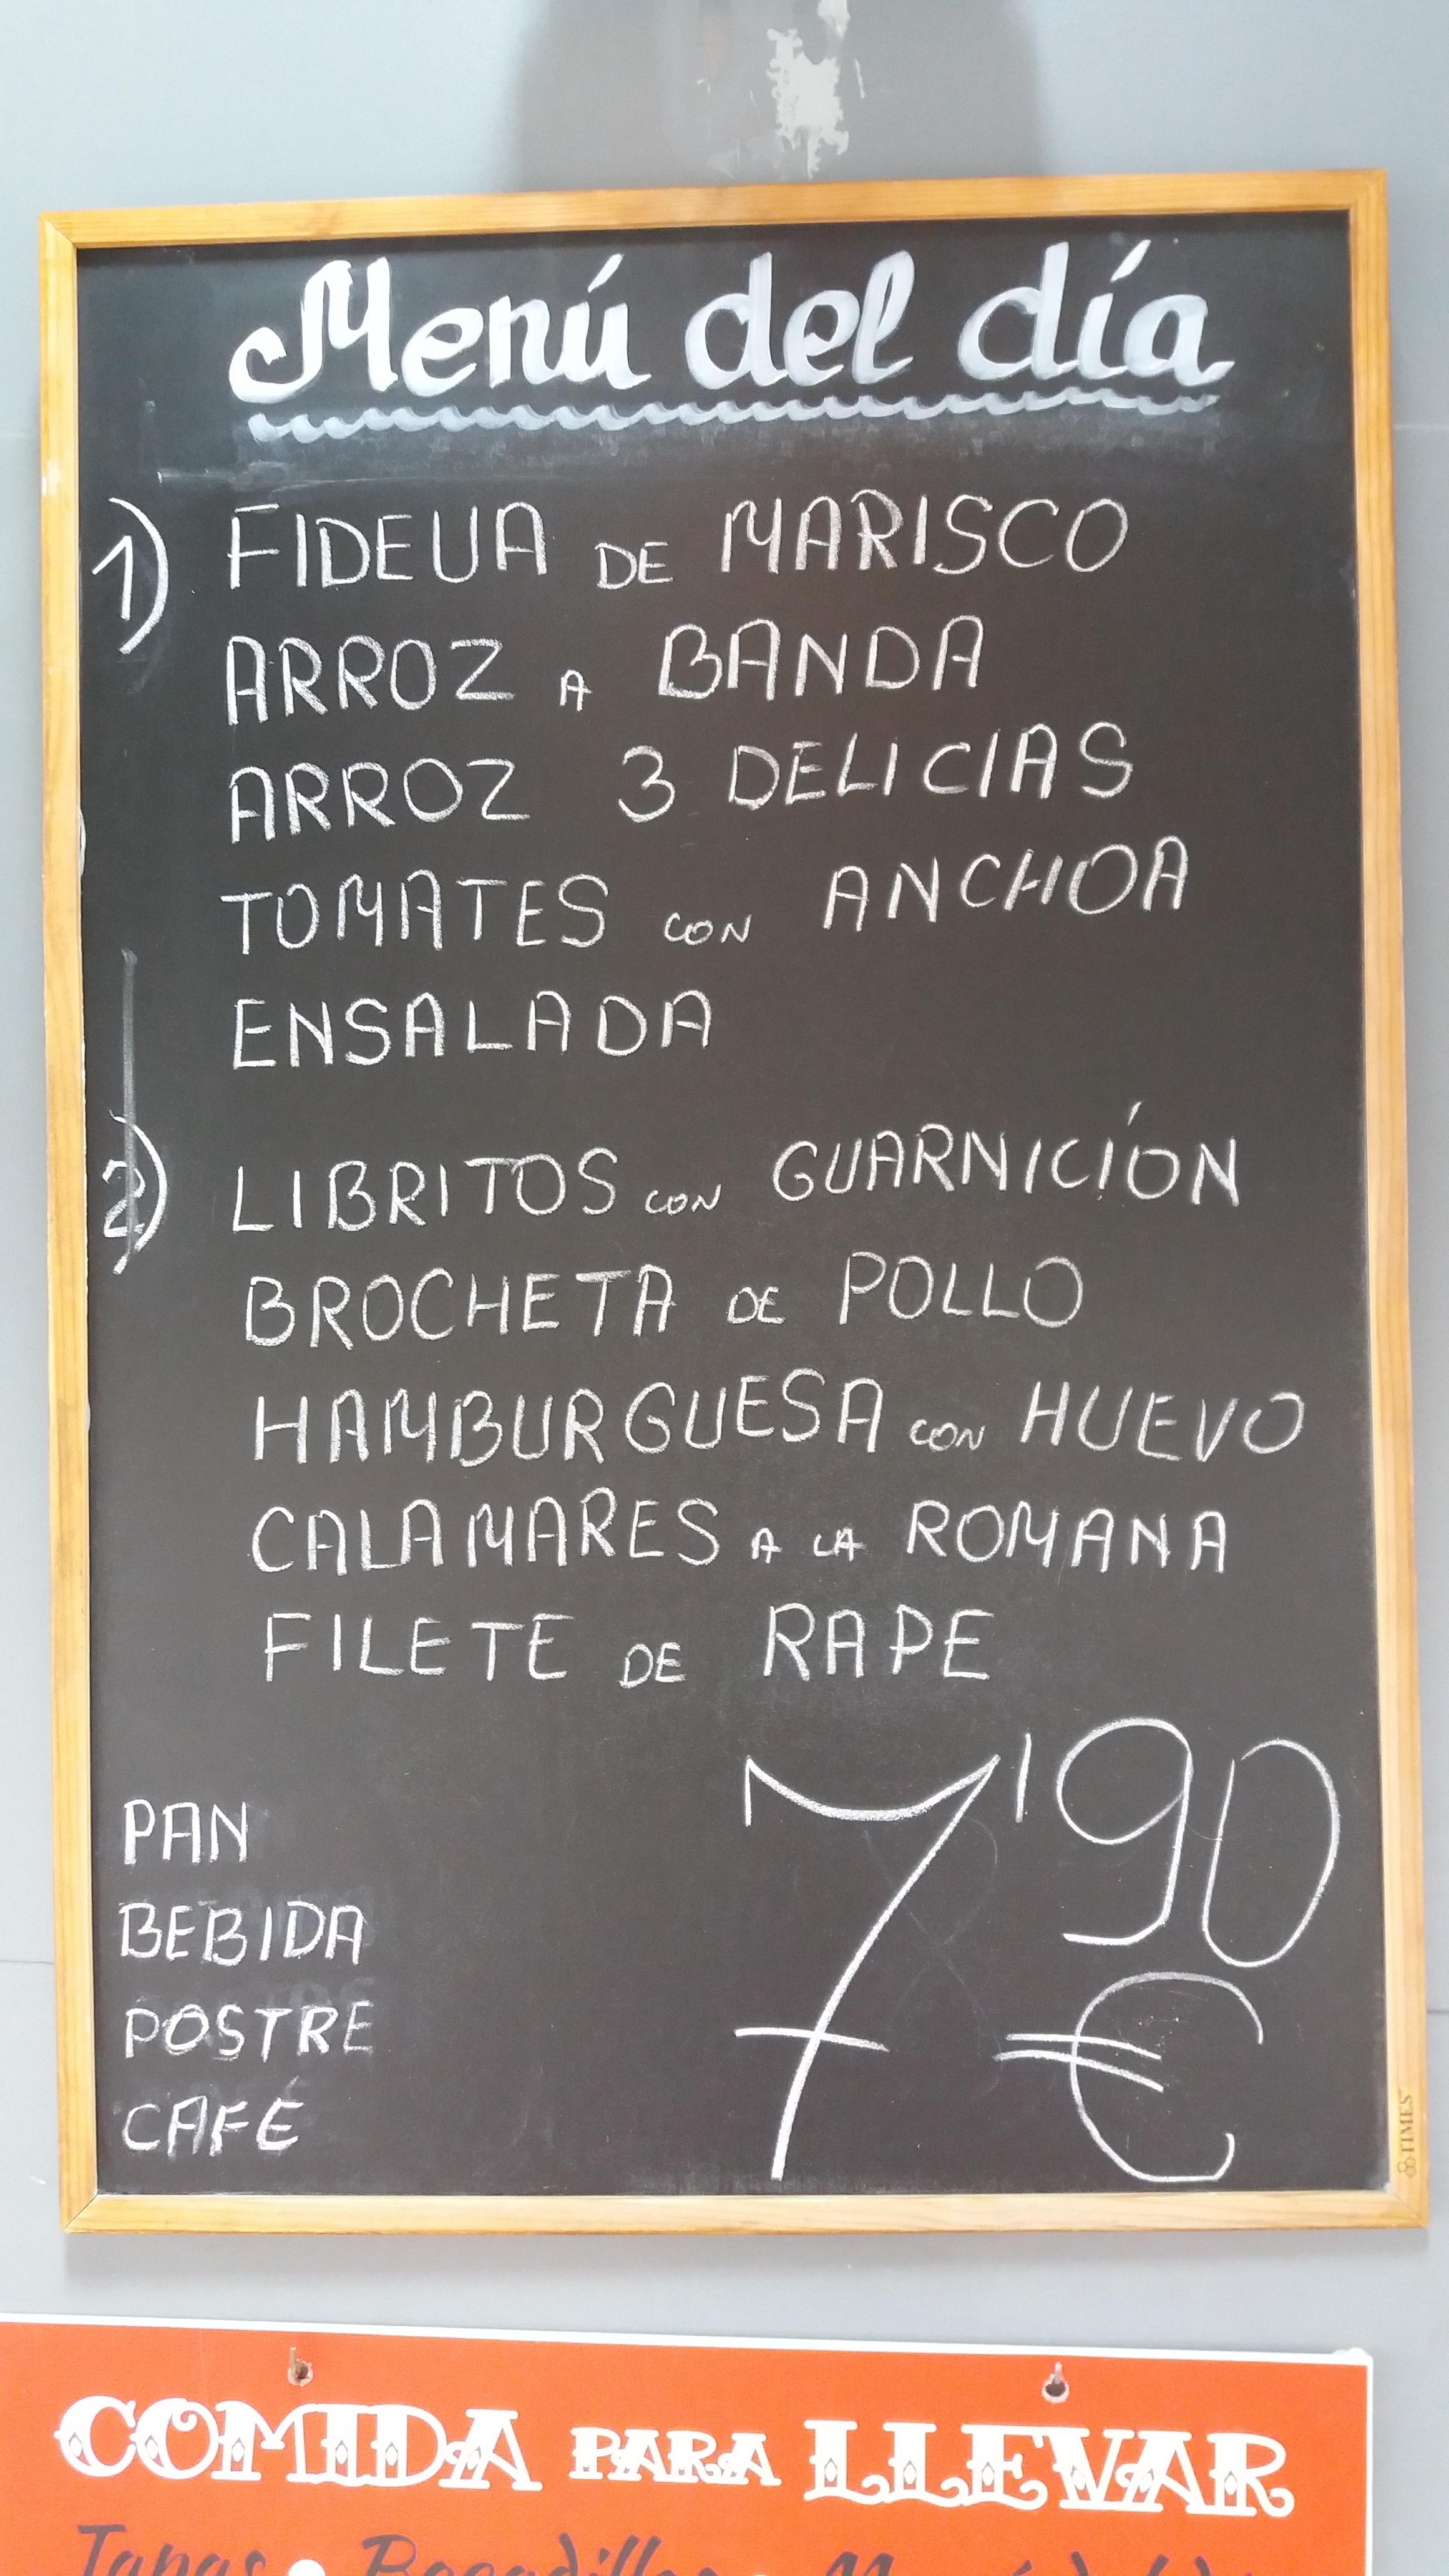 Menú del día
1) FIDEUA DE MARISCO
ARROZ A BANDA
ARROZ 3 DELICIAS
TOMATES CON ANCHOA
ENSALADA
2) LIBRITOS CON GUARNICIÓN
BROCHETA DE POLLO
HAMBURGUESA CON HUEVO
CALAMARES A LA ROMANA
FILETE DE RAPE
PAN
BEBIDA
POSTRE
CAFÉ
7'90
€
TIMES
COMIDA PARA LLEVAR
Tapas • Bocadillos • Menú del día